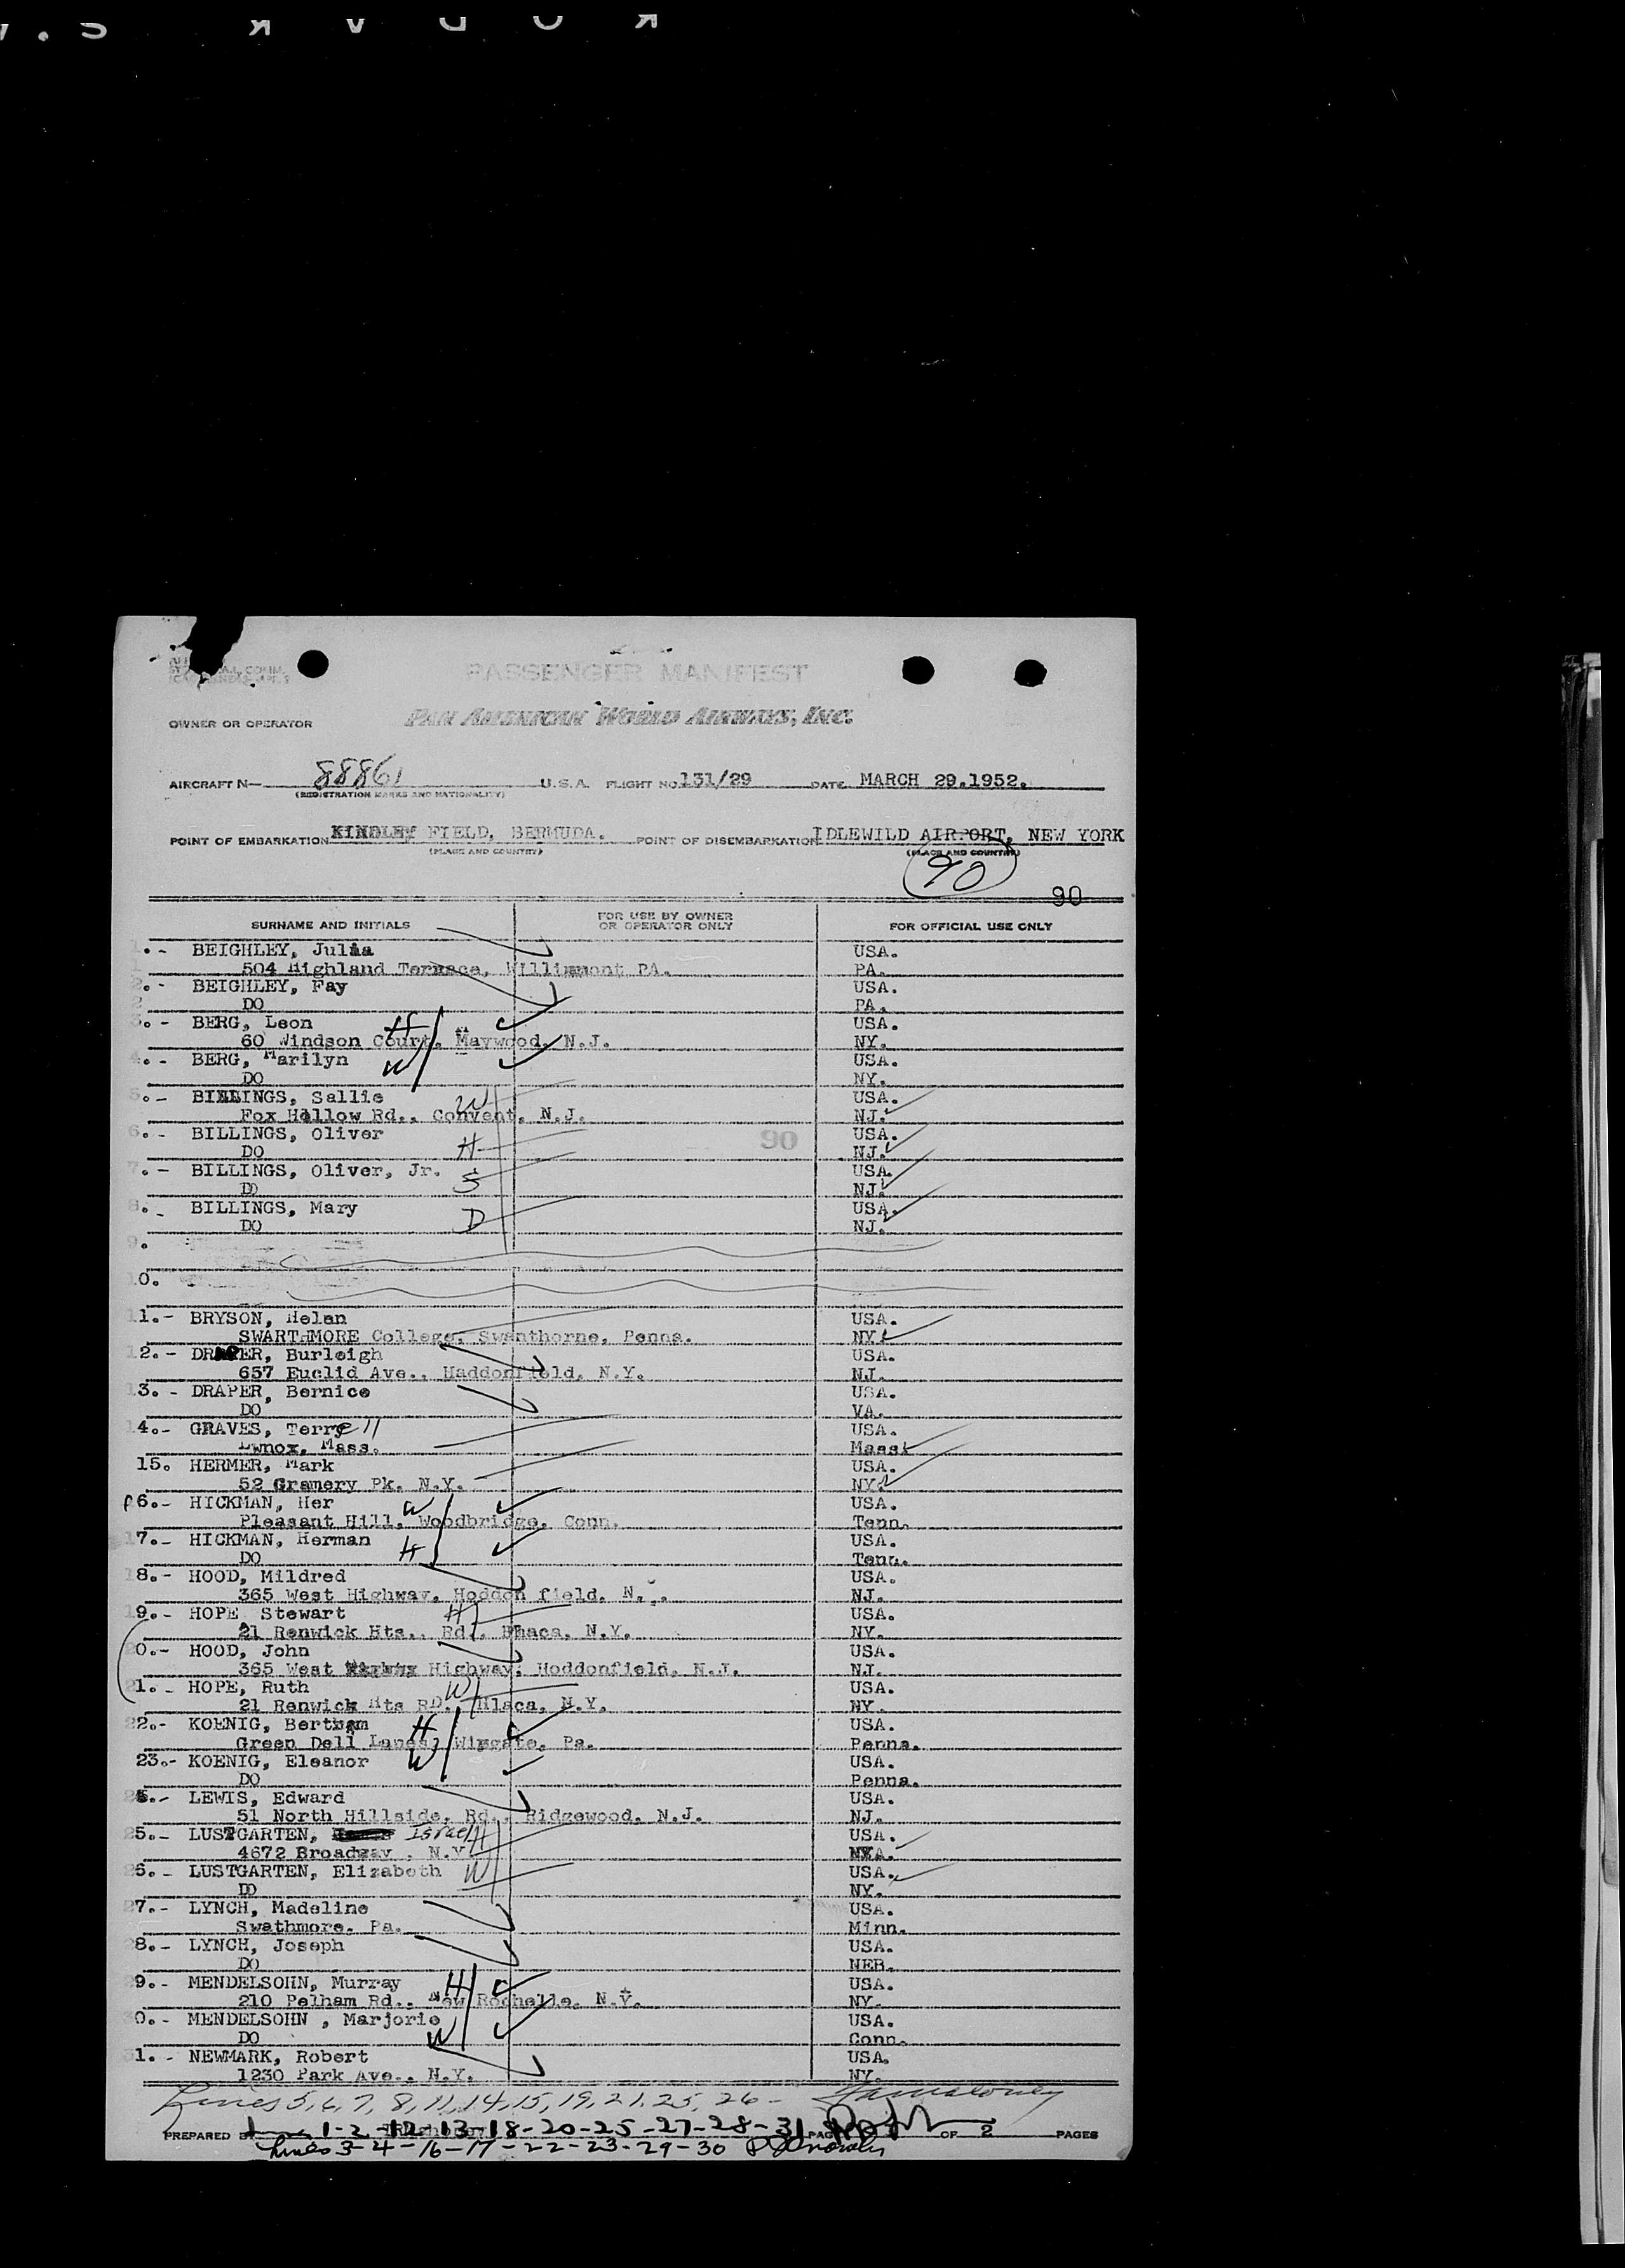 PASSENGER MANIFEST
OWNER OR OPERATOR PAN AMERICAN WORLD AIRWAYS, INC.
AIRCRAFT N— 88861 U.S.A. FLIGHT NO. 131/29 DATE MARCH 29.1952.
(REGISTRATION MARKS AND NATIONALITY)
POINT OF EMBARKATION KINDLEY FIELD, BERMUDA. POINT OF DISEMBARKATION IDLEWILD AIRPORT, NEW YORK
(PLACE AND COUNTRY) (PLACE AND COUNTRY)
90
90
SURNAME AND INITIALS FOR USE BY OWNER OR OPERATOR ONLY FOR OFFICIAL USE ONLY
1.- BEIGHLEY, Julia USA.
504 Highland Terrace, PA. PA.
2.- BEIGHLEY, Fay USA.
DO PA.
3.- BERG, Leon H USA.
60 Windson Court, Maywood, N.J. NY.
4.- BERG, Marilyn W USA.
DO NY.
5.- BILLINGS, Sallie W USA.
Fox Hollow Rd., Convent, N.J. NJ.
6.- BILLINGS, Oliver USA.
DO H 90 NJ.
7.- BILLINGS, Oliver, Jr. USA.
DO S NJ.
8.- BILLINGS, Mary USA.
DO D NJ.
9.
10.
11.- BRYSON, Helen USA.
SWARTHMORE College, Swanthorne, Penna. NY.
12.- DRAPER, Burleigh USA.
657 Euclid Ave., Haddonfield, N.Y. NJ.
13.- DRAPER, Bernice USA.
DO VA.
14.- GRAVES, Terrell USA.
Lwnox, Mass. Mass.
15. HERMER, Mark USA.
52 Gramery Pk. N.Y. NY.
16.- HICKMAN, Her W USA.
Pleasant Hill, Woodbridge, Conn. Tenn.
17.- HICKMAN, Herman H USA.
DO Tenn.
18.- HOOD, Mildred USA.
365 West Highway, Hoddon field, N. NJ.
19.- HOPE Stewart H USA.
21 Renwick Hts., Rd., Ithaca, N.Y. NY.
20.- HOOD, John USA.
365 West Highway, Hoddonfield, N.J. NJ.
21.- HOPE, Ruth W USA.
21 Renwick Hts RD., Hlaca, N.Y. NY.
22.- KOENIG, Bertham H USA.
Green Dell Lanes, Wingate, Pa. Penna.
23.- KOENIG, Eleanor W USA.
DO Penna.
24.- LEWIS, Edward USA.
51 North Hillside, Rd., Ridgewood, N.J. NJ.
25.- LUSTGARTEN, Israel H USA.
4672 Broadway , N.Y.
26.- LUSTGARTEN, Elizabeth W USA.
DO NY.
27.- LYNCH, Madeline USA.
Swathmore, Pa. Minn.
28.- LYNCH, Joseph USA.
DO NEB.
29.- MENDELSOHN, Murray H USA.
210 Pelham Rd., New Rochelle, N.Y. NY.
30.- MENDELSOHN , Marjorie W USA.
DO Conn.
31.- NEWMARK, Robert USA.
1230 Park Ave., N.Y. NY.
Lines 5, 6, 7, 8, 11, 14, 15, 19, 21, 25, 26 -
PREPARED BY 1-2-12-13-18-20-25-27-28-31 PAGE OF 2 PAGES
Lines 3-4-16-17-22-23-29-30